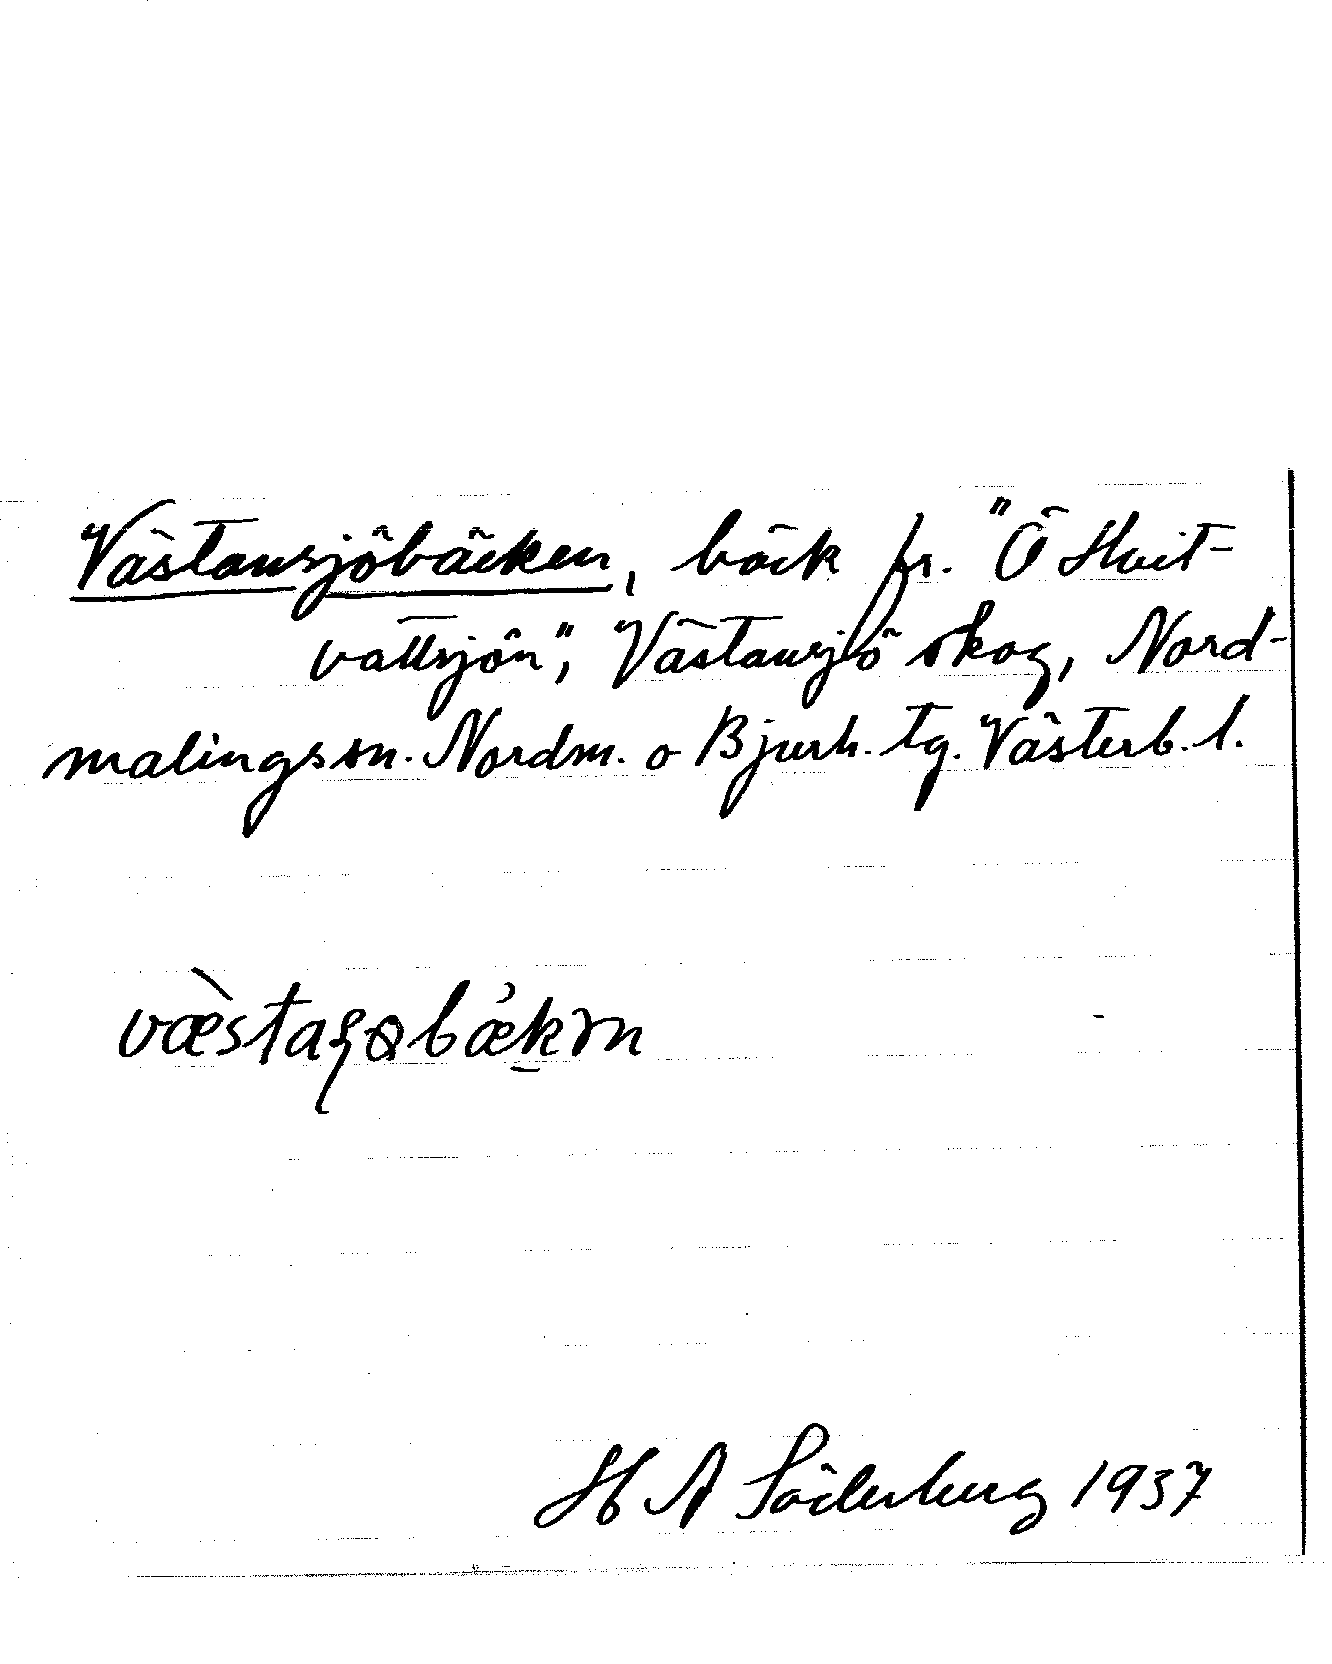 Västansjöbäcken, bäck fr. "Ö Hvit-
vattsjön", Västansjö skog, Nord-
malings sn. Nordm. o Bjurh. tg. Västerb. l.
H A Söderberg 1937